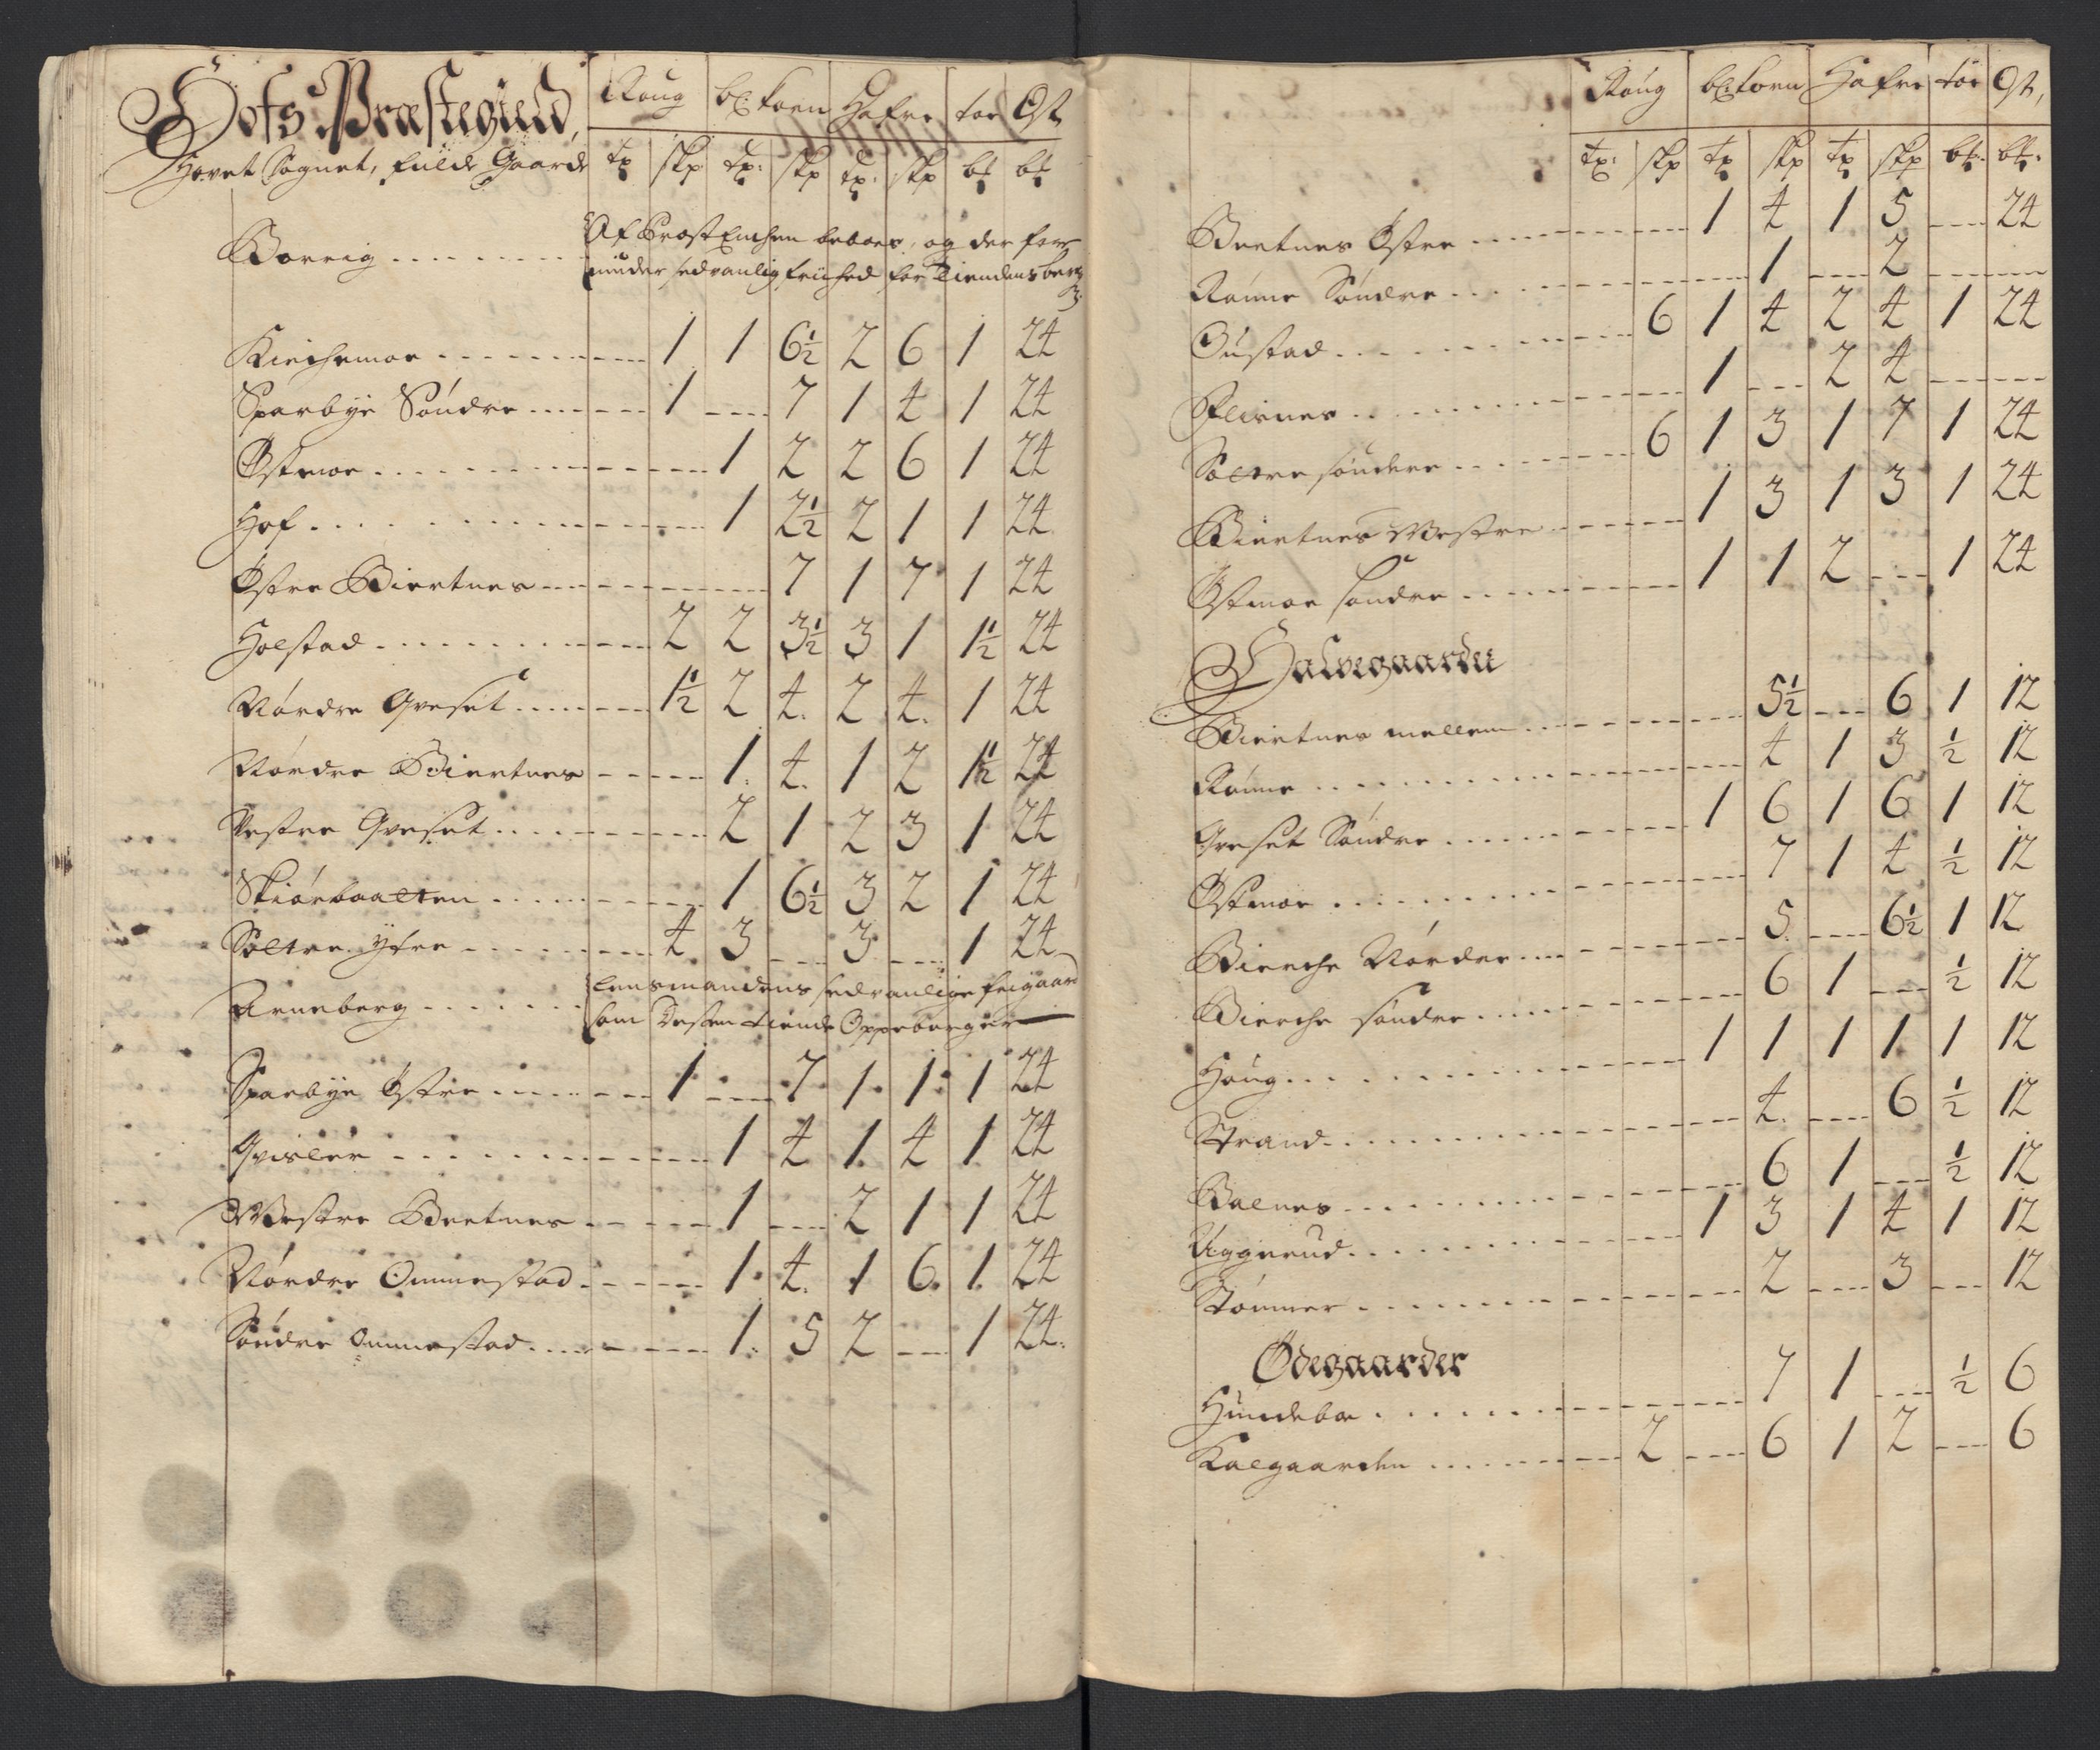 Hofs Præstegield,
Hovet Sognet, fulde Gaarde
Roug bl: korn Hafre tør Ost
tr skp tr: skp tr: skp bt bt
Borrig . . . . . . . . Af Prost Enchen beboes, og der for
under sedvanlig friihed for Tiendens
Kirchemoe . . . . . . . . ---- 1 1 6½ 2 6 1 24
Sparbye Søndre . . . . --- 1 ---- 7 1 4 1 24
Østmoe . . . . . . . . ------- 1 2 2 6 1 24
Hof . . . . . . . . ------- 1 2½ 2 1 1 24
Østre Biertnes ---- ---------- 7 1 7 1 24
Holstad . . . . . . . . ---- 2 2 3½ 3 1 1½ 24
Nordre Gveset . . . . . --- 1½ 2 4. 2 4. 1 24
Nordre Biertnes ------- 1. 4. 1 2 1½ 24
Vestre Gveset . . . . ------ 2 1 2 3 1 24
Skiørbaalten . . . . ------ 1 6½ 3 2 1 24
Soltre yfre . . . . ---- 4 3 --- 3 --- 1 24
Arneberg . . . . . . . Lensmandens sedvanlige friigaard
som Desten tiende Oppebærger
Sparbye Østre . . . . ---- 1 ---- 7 1. 1. 1 24
Gvisler . . . . . . . ------ 1 4 1. 4 1 24
Vestre Bertnes ------ 1 --- 2 1 1 24
Nordre Ommestad . ------ 1. 4. 1 6. 1. 24
Søndre Ommestad . . . ------ 1. 5 2 --- 1 24.
Roug bl: korn Hafre tør Ost,
tr: skp tr skp tr skp bt. bt.
Bertnes Østre . . . --------- 1 4 1 5 --- 24
Rønne Søndre . . . . --------- 1 --- 2 -------
Oustad . . . . . . . ---- 6 1 4 2 4 1 24
Flisnes . . . . . . . ------- 1 --- 2 4 ------
Soltre søndere . . . . ---- 6 1 3 1 7 1 24
Biertnes Vestre ------- 1 3 1 3 1 24
Østmoe søndre . . . ------- 1 1 2 --- 1 24
Halvegaarder
Biertnes mellem . . ------- 5½ --- 6 1 12
Rønne . . . . . . . ------- 4 1 3 ½ 12
Greset Søndre . . . . ------ 1 6 1 6 1 12
Østmoe . . . . . . . ------- 7 1 4 ½ 12
Bierche Nordre . . . ------- 5. --- 6½ 1 12
Bierche søndre . . . ------- 6 1 --- ½ 12
Houg . . . . . . . ------- 1 1 1 1 1 12
Strand . . . . . . . ------- 4. --- 6 ½ 12
Balnes . . . . . . . ------- 6 1 --- ½ 12
Uggerud . . . . . . ------- 1 3 1 4 1 12
Stømner . . . . . . ------- 2 --- 3 --- 12
Ødegaarder
Hundeboe . . . . . . ------- 7 1 --- ½ 6
Kalgaarden . . . . . ---- 2 --- 6 1 2 --- 6